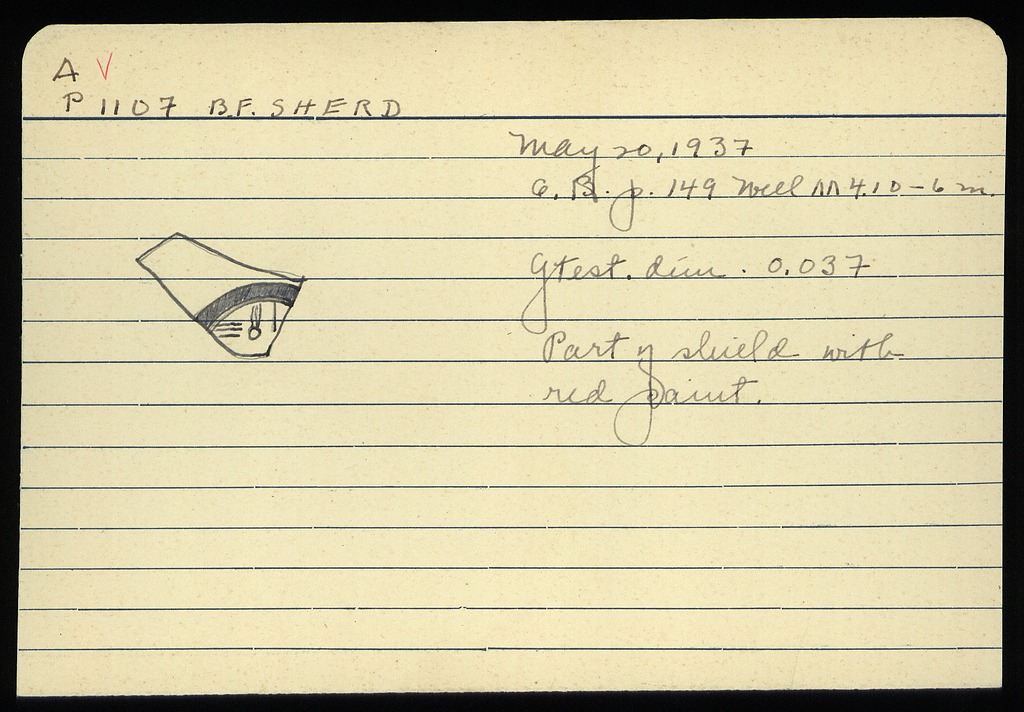 A V
P 1107 B.F. SHERD
May 20, 1937
G.B. p. 149 Well M 4.10-6 m.
Gtest. dim. 0.037
Part of shield with
red paint.